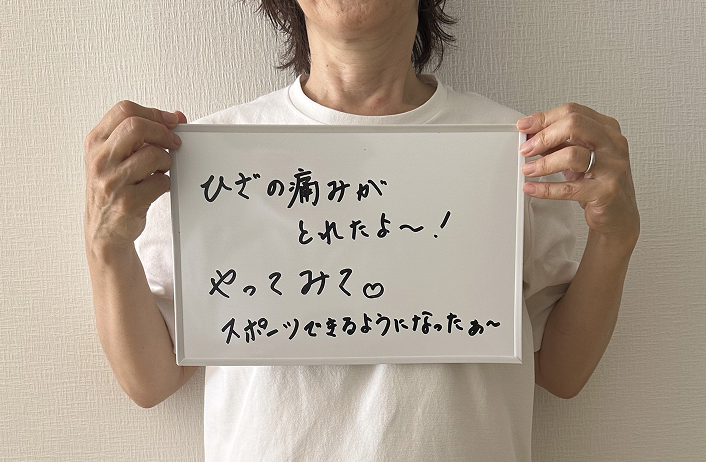 ひざの痛みが
とれたよ〜!
やってみて♡
スポーツできるようになったぁ〜